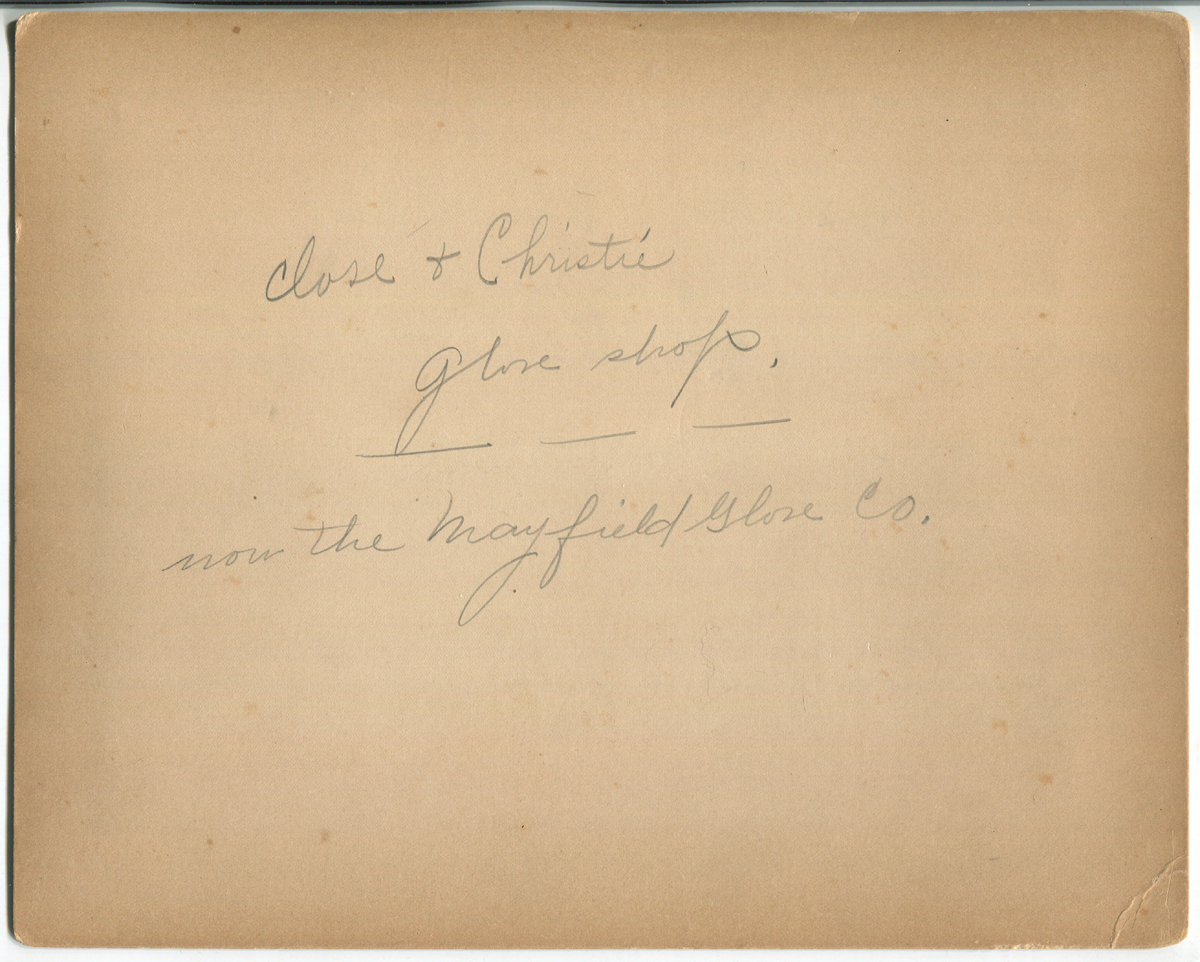 Close & Christie
Glove shop.
— — —
now the Mayfield Glove Co.